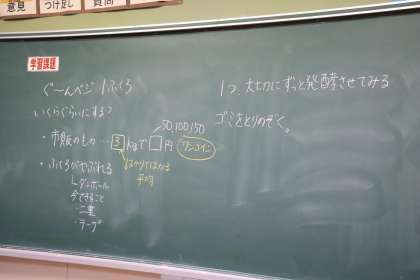 意見
つけ足し
質問
学習課題
ぐ〜んベジ 1ふくろ
いくらぐらいにする?
50,100,150
・市販のもの…3kgで□円 ワンコイン
はかりではかる
平均
・ふくろがやぶれる
ダンボール
今できること
二重
テープ
1つ、大切にずっと発酵させてみる
ゴミをとりのぞく。